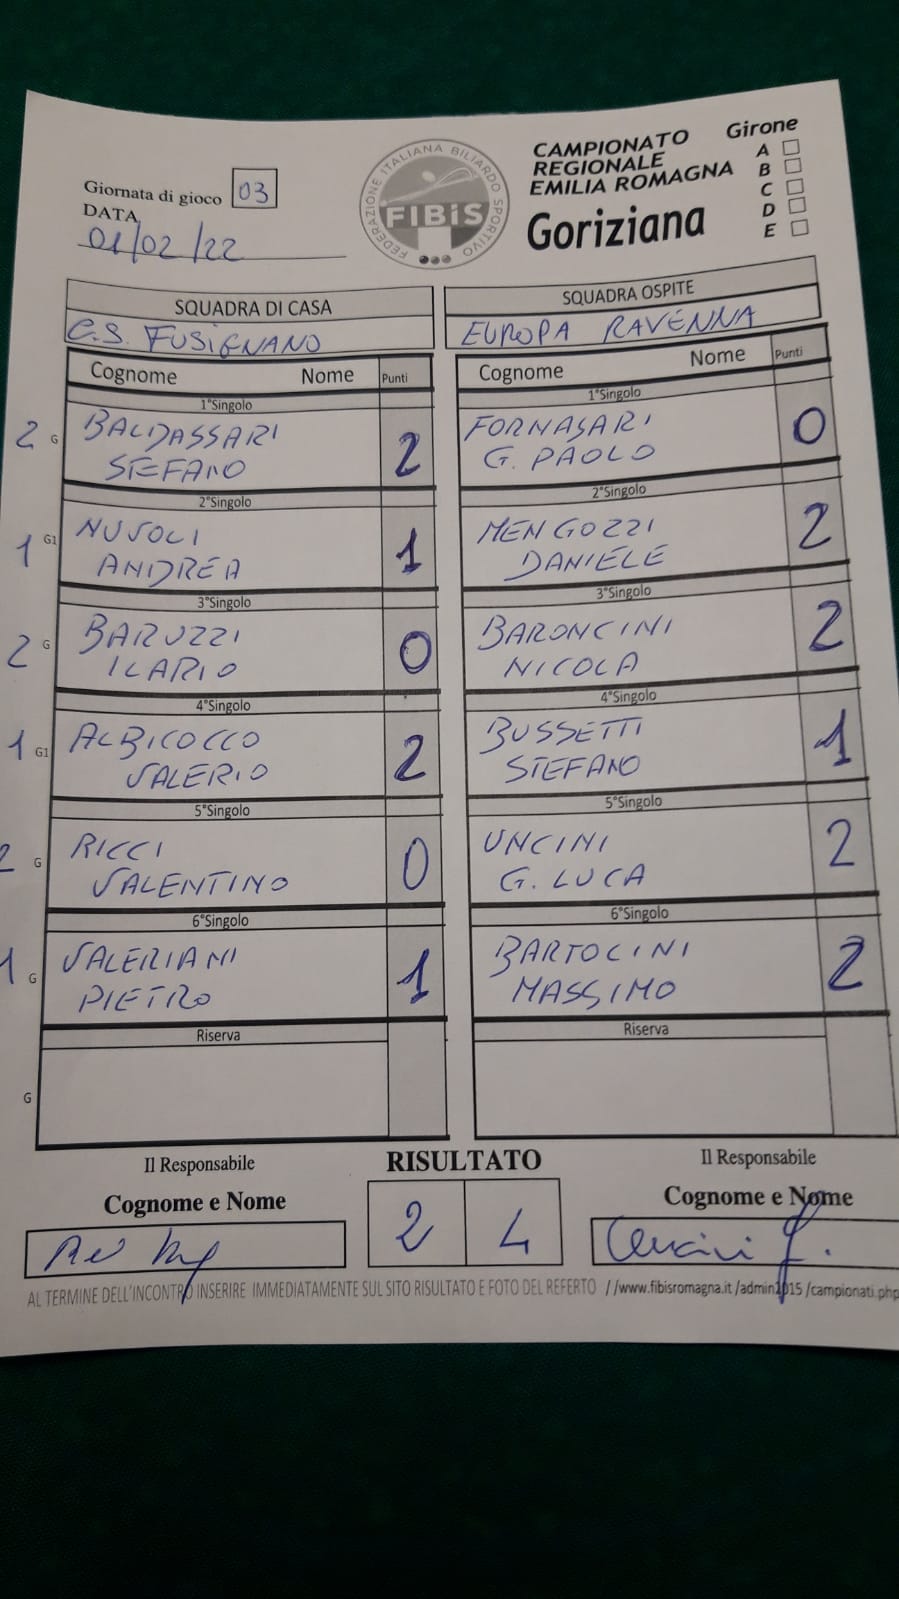 Giornata di gioco 03
DATA
01/02/22
FEDERAZIONE ITALIANA BILIARDO SPORTIVO
FIBiS
CAMPIONATO
REGIONALE
EMILIA ROMAGNA
Goriziana
Girone
A
B
C
D
E
SQUADRA DI CASA
C.S. FUSIGNANO
Cognome Nome Punti
1°Singolo
2 G BALDASSARI
STEFANO 2
2°Singolo
1 G1 NUVOLI
ANDREA 1
3°Singolo
2 G BARUZZI
ILARIO 0
4°Singolo
1 G1 ALBICOCCO
VALERIO 2
5°Singolo
2 G RICCI
VALENTINO 0
6°Singolo
1 G VALERIANI
PIETRO 1
Riserva
G
SQUADRA OSPITE
EUROPA RAVENNA
Cognome Nome Punti
1°Singolo
FORNASARI
G. PAOLO 0
2°Singolo
MENGOZZI
DANIELE 2
3°Singolo
BARONCINI
NICOLA 2
4°Singolo
BUSSETTI
STEFANO 1
5°Singolo
UNCINI
G. LUCA 2
6°Singolo
BARTOLINI
MASSIMO 2
Riserva
Il Responsabile
Cognome e Nome
RISULTATO
2 4
Il Responsabile
Cognome e Nome
AL TERMINE DELL'INCONTRO INSERIRE IMMEDIATAMENTE SUL SITO RISULTATO E FOTO DEL REFERTO //www.fibisromagna.it/admin2015/campionati.php